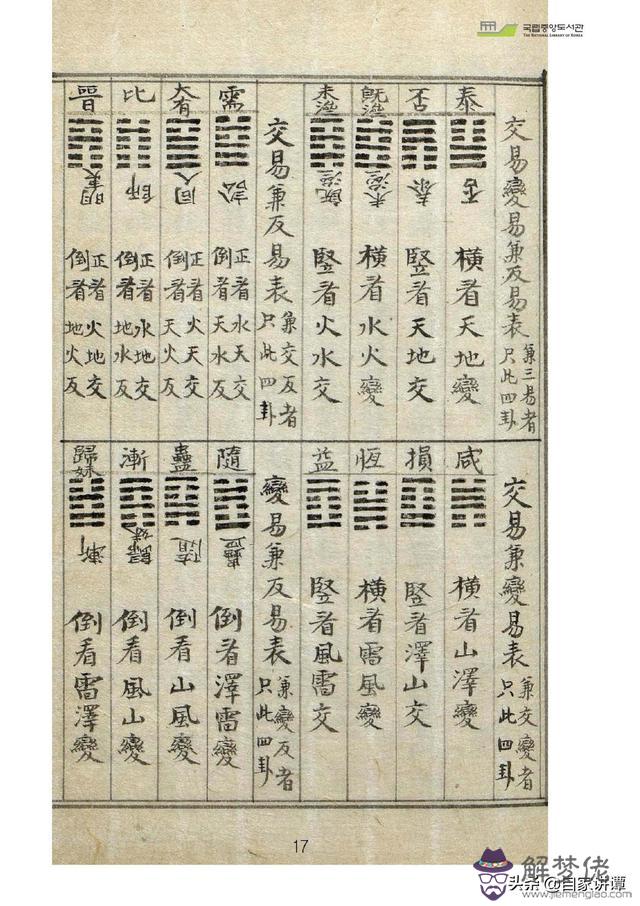 국립중앙도서관
THE NATIONAL LIBRARY OF KOREA
交易變易兼反易表 兼三易者只此四卦
泰 否 橫看天地變
否 泰 竪看天地交
旣濟 未濟 橫看水火變
未濟 旣濟 竪看火水交
交易兼反易表 兼交反者只此四卦
需 訟 正看水天交 倒看天水反
大有 同人 正看火天交 倒看天火反
比 師 正看水地交 倒看地水反
晋 明夷 正看火地交 倒看地火反
交易兼變易表 兼交變者只此四卦
咸 橫看山澤變
損 竪看澤山交
恆 橫看雷風變
益 竪看風雷交
變易兼反易表 兼變反者只此四卦
隨 蠱 倒看澤雷變
蠱 隨 倒看山風變
漸 歸妹 倒看風山變
歸妹 漸 倒看雷澤變
17
解梦佬
头条 @自家讲谭
www.jiemenglao.com